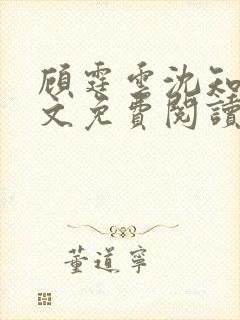 顾霆雲沈知
文免費閱讀
董道寧